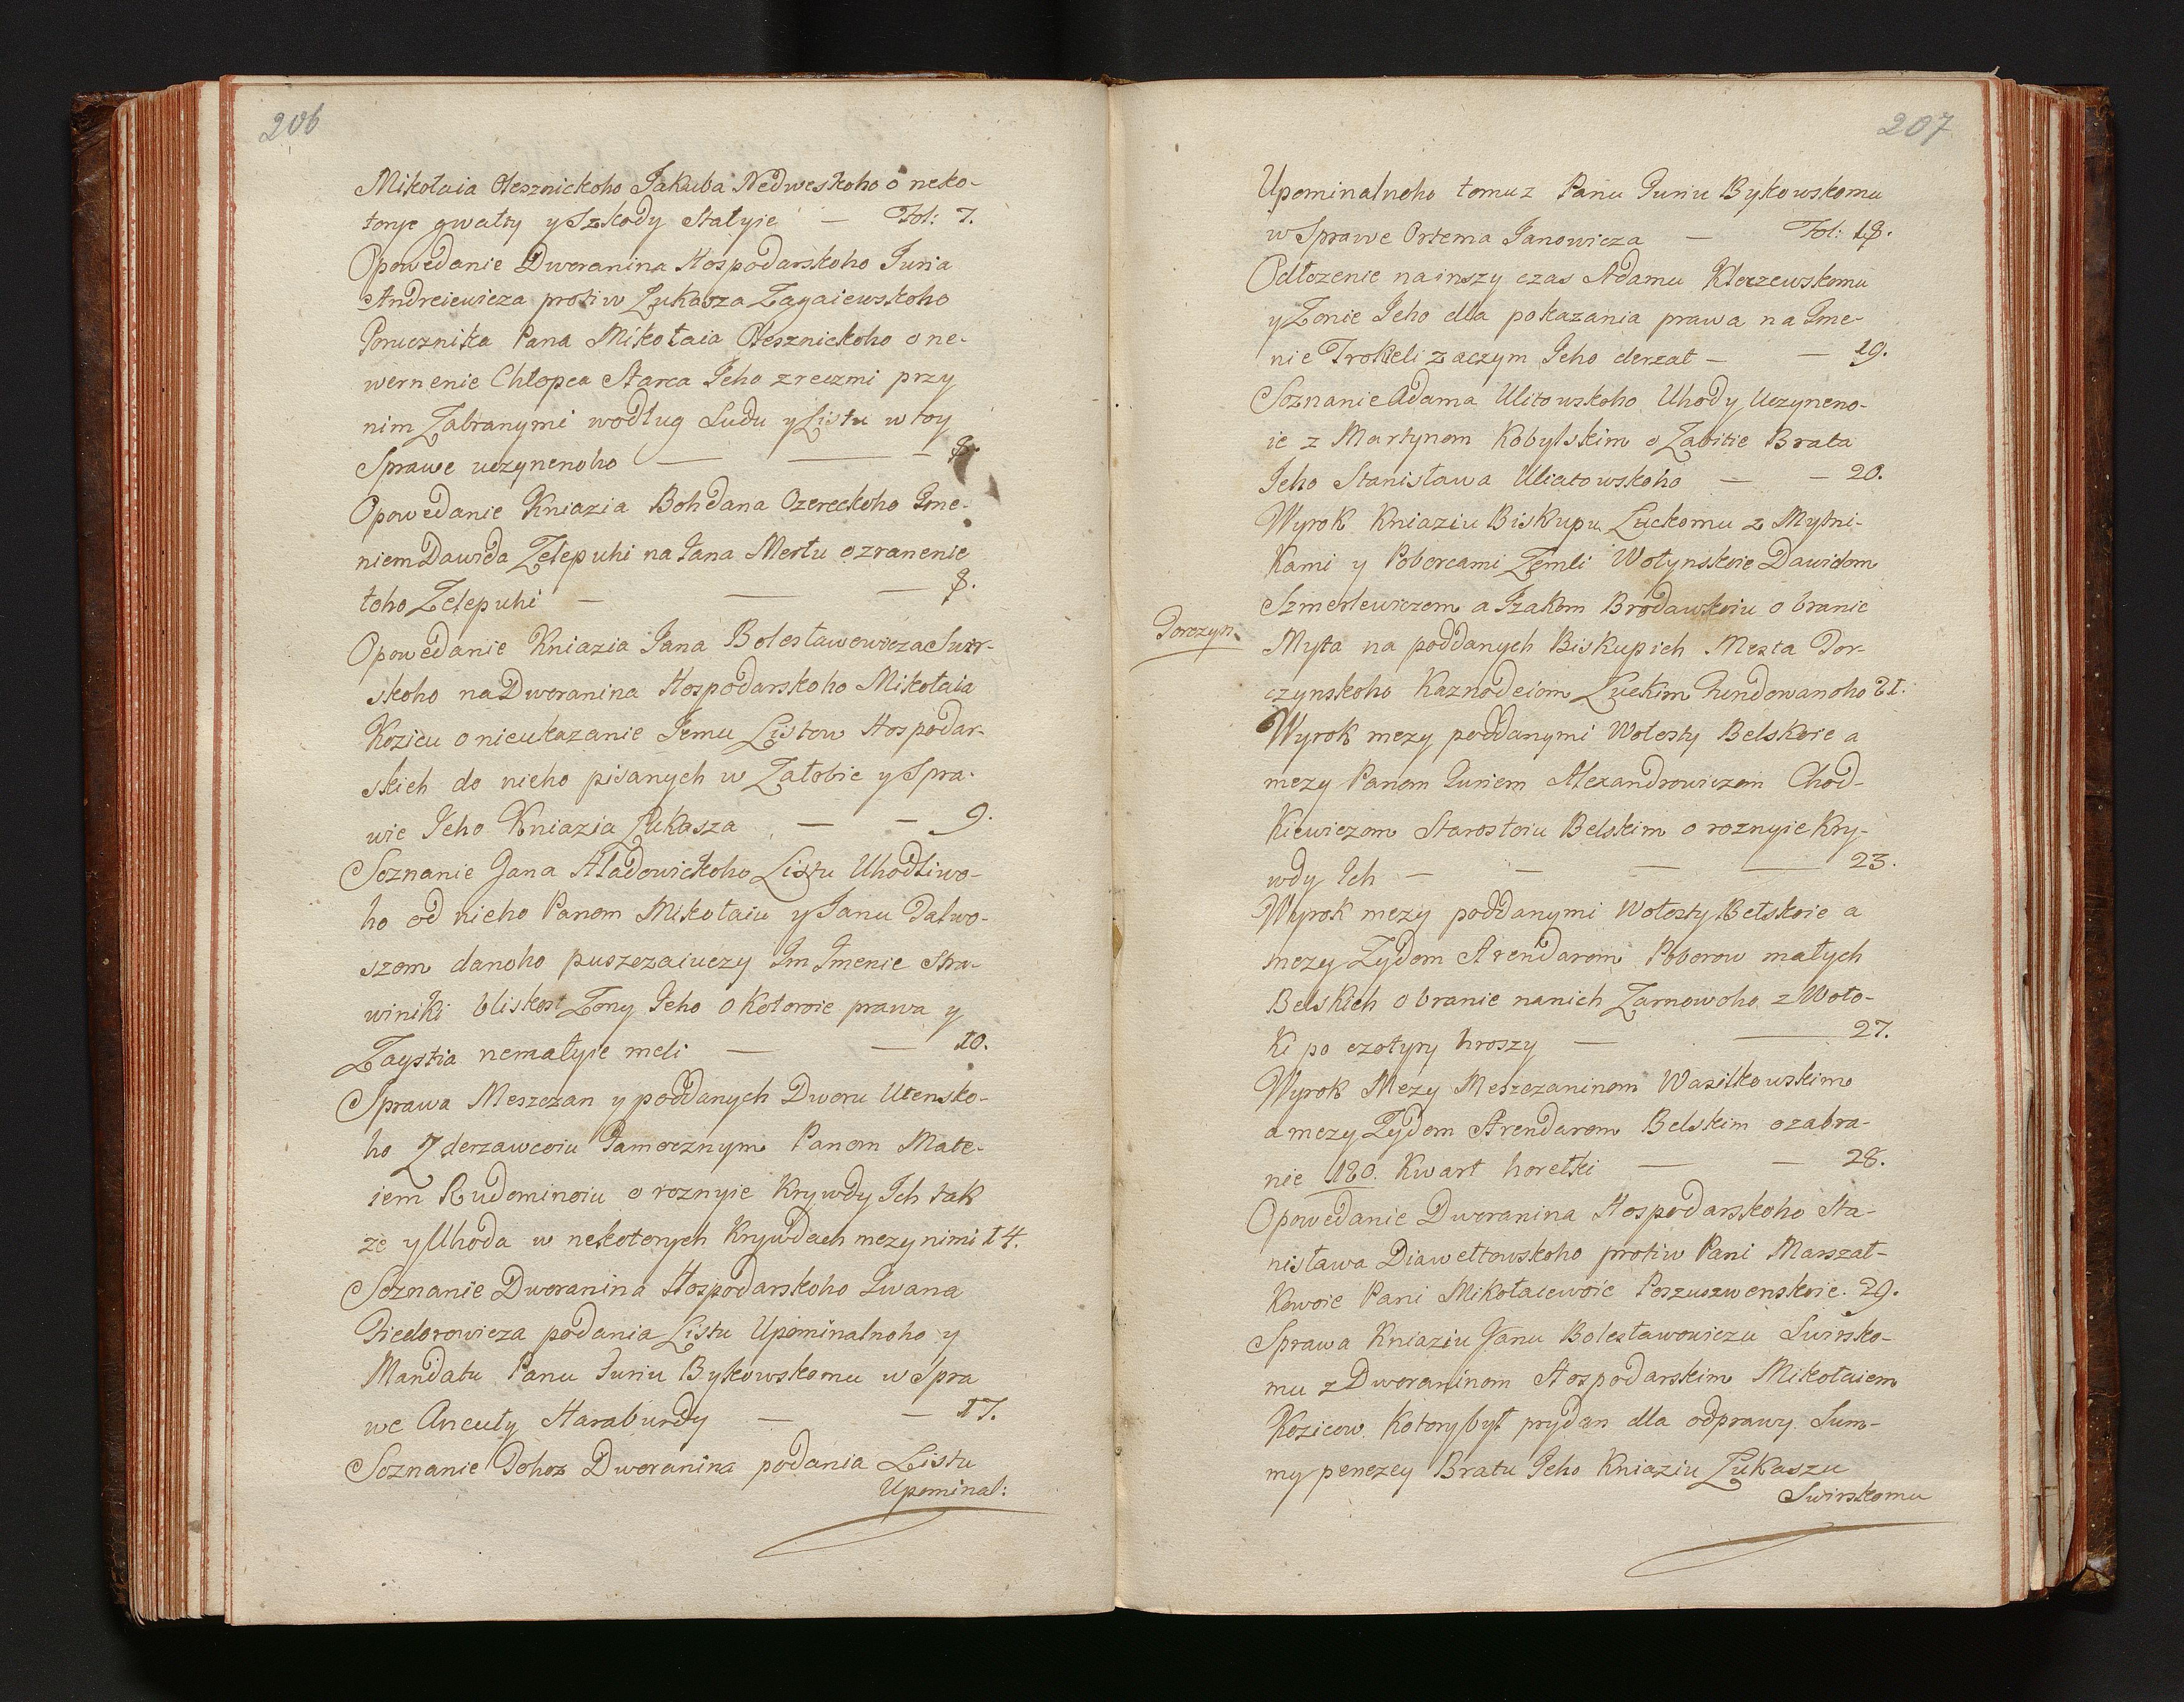 206
Mikołaia Olesznickoho Jakuba Nedweskoho o neko-
torye gwałty y Szkody Stałyie — Fol: 7.
Opowedanie Dworanina Hospodarskoho Juria
Andreiewicza protiw Łukasza Zagaiewskoho
Porucznika Pana Mikołaia Olesznickoho o ne-
wernenie Chłopca Starca Jeho z reczmi przy
nim Zabranymi wodług Sudu y Listu w toy
Sprawe uczynenoho — — 8.
Opowedanie Kniazia Bohdana Ozereckoho Jme-
niem Dawida Zelepuhi na Jana Mertu o zranenie
toho Zelepuhi — — — 8.
Opowedanie Kniazia Jana Bolesławowicza Swir-
skoho na Dworanina Hospodarskoho Mikołaia
Kozicu o nieukazanie Jemu Listow Hospodar-
skich do nieho pisanych w Załobie y Spra-
wie Jeho Kniazia Łukasza — — 9.
Soznanie Jana Hladowickoho Listu Uhodliwo-
ho od nieho Panom Mikołaiu y Janu Dalwo-
szom danoho puszczaiuczy Jm Jmenie Stra-
winiki bliskost Zony Jeho o kotoroie prawa y
Zaystia nemałyie meli — — 10.
Sprawa Meszczan y poddanych Dworu Utensko-
ho Z derzawcoiu Tamocznym Panom Mate-
iem Rudominoiu o roznyie Krywdy Jch tak
ze y Uhoda w nekotorych Krywdach mezy nimi 14.
Soznanie Dworanina Hospodarskoho Jwana
Fiedorowicza podania Listu Upominalnoho y
Mandatu Panu Juriu Bykowskomu w Spra
we Ancuty Haraburdy — — 17.
Soznanie Tohoz Dworanina podania Listu
Upominal:
207
Upominalnoho tomuz Panu Juriu Bykowskomu
w Sprawe Ortema Janowicza — Fol: 18.
Odłozenie na inszy czas Adamu Kłoczewskomu
y Zonie Jeho dla pokazania prawa na Jme-
nie Trokieli za czym Jeho derzał — — 19.
Soznanie Adama Ulitowskoho Uhody Uczyneno-
ie z Martynom Kobylskim o Zabitie Brata
Jeho Stanisława Uliatowskoho — — 20.
Wyrok Kniaziu Biskupu Łuckomu z Mytni-
kami y Poborcami Zemli Wołynskoie Dawidom
Szmerlewiczem a Jzakom Brodawkoiu o branie
Torczyn.
Myta na poddanych Biskupich Mesta Tor-
czynskoho Kaznodeiom Łuckim Fundowanoho 21.
Wyrok mezy poddanymi Wołosty Belskoie a
mezy Panom Juriem Alexandrowiczom Chod-
kiewiczom Starostoiu Belskim o roznyie Kry-
wdy Jch — — — — 23.
Wyrok mezy poddanymi Wołosty Bełskoie a
mezy Zydom Arendarom Poborow małych
Belskich o branie nanich Zarnowoho z Woło-
ki po czotyry hroszy — — 27.
Wyrok Mezy Meszczaninom Wasilkowskim
a mezy Zydom Arendarom Belskim o zabra-
nie 180. Kwart horełki — — 28.
Opowedanie Dworanina Hospodarskoho Sta-
nisława Diawełtowskoho protiw Pani Marszał-
kowoie Pani Mikołaiewoie Poszuszwenskoie. 29.
Sprawa Kniaziu Janu Bolesławowiczu Swirsko-
mu z Dworaninom Hospodarskim Mikołaiem
Kozicow. Kotory był prydan dla odprawy Sum-
my penezey Bratu Jeho Kniaziu Łukaszu
Swirskomu